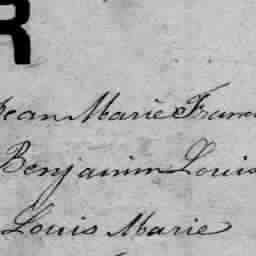 R
Jean Marie Fran
Benjamin Louis
Louis Marie